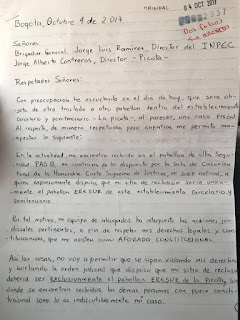 ORIGINAL
04 OCT 2017
Dos folios
sin anexos
Bogotá, Octubre 4 de 2.017
Señores
Brigadier General, Jorge Luis Ramirez, Director del INPEC
Jorge Alberto Contreras, Director - Picota -
Respetados Señores:
Con preocupación he escuchado en el día de hoy, que seré ob-
jeto de otro traslado a otro pabellon dentro del establecimiento
carcelario y penitenciario - La picota -, al parecer, una casa fiscal.
Al respecto, de manera respetuosa pero enfatica me permito man-
ifestar lo siguiente:
En la actualidad me encuentro recluido en el pabellon de alta Segu-
ridad PAS B, en contravia de lo dispuesto por la Sala de Casación
Penal de la Honorable Corte Suprema de Justicia, mi juez natural,
quien expresamente dispuso que mi sitio de reclusión sería unica-
mente el pabellon ERE SUR de este establecimiento carcelario y
penitenciario.
Por tal motivo, mi equipo de abogados ha interpuesto las acciones judi-
diciales pertinentes, a fin de respetar mis derechos legales y cons-
titucionales, que me asisten como AFORADO CONSTITUCIONAL.
Así las cosas, no voy a permitir que se sigan violando mis derechos
y burlando la orden judicial que dispuso que mi sitio de reclusión
debería ser exclusivamente el pabellon ERE SUR de la Picota,
donde se encuentran recluidos las demas personas con fuero consti-
tucional como lo es indiscutiblemente mi caso.